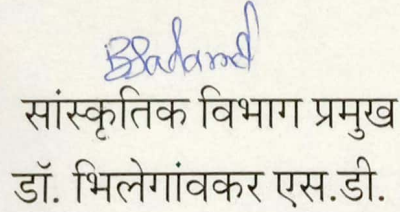 सांस्कृतिक विभाग प्रमुख
डॉ. भिलेगांवकर एस.डी.